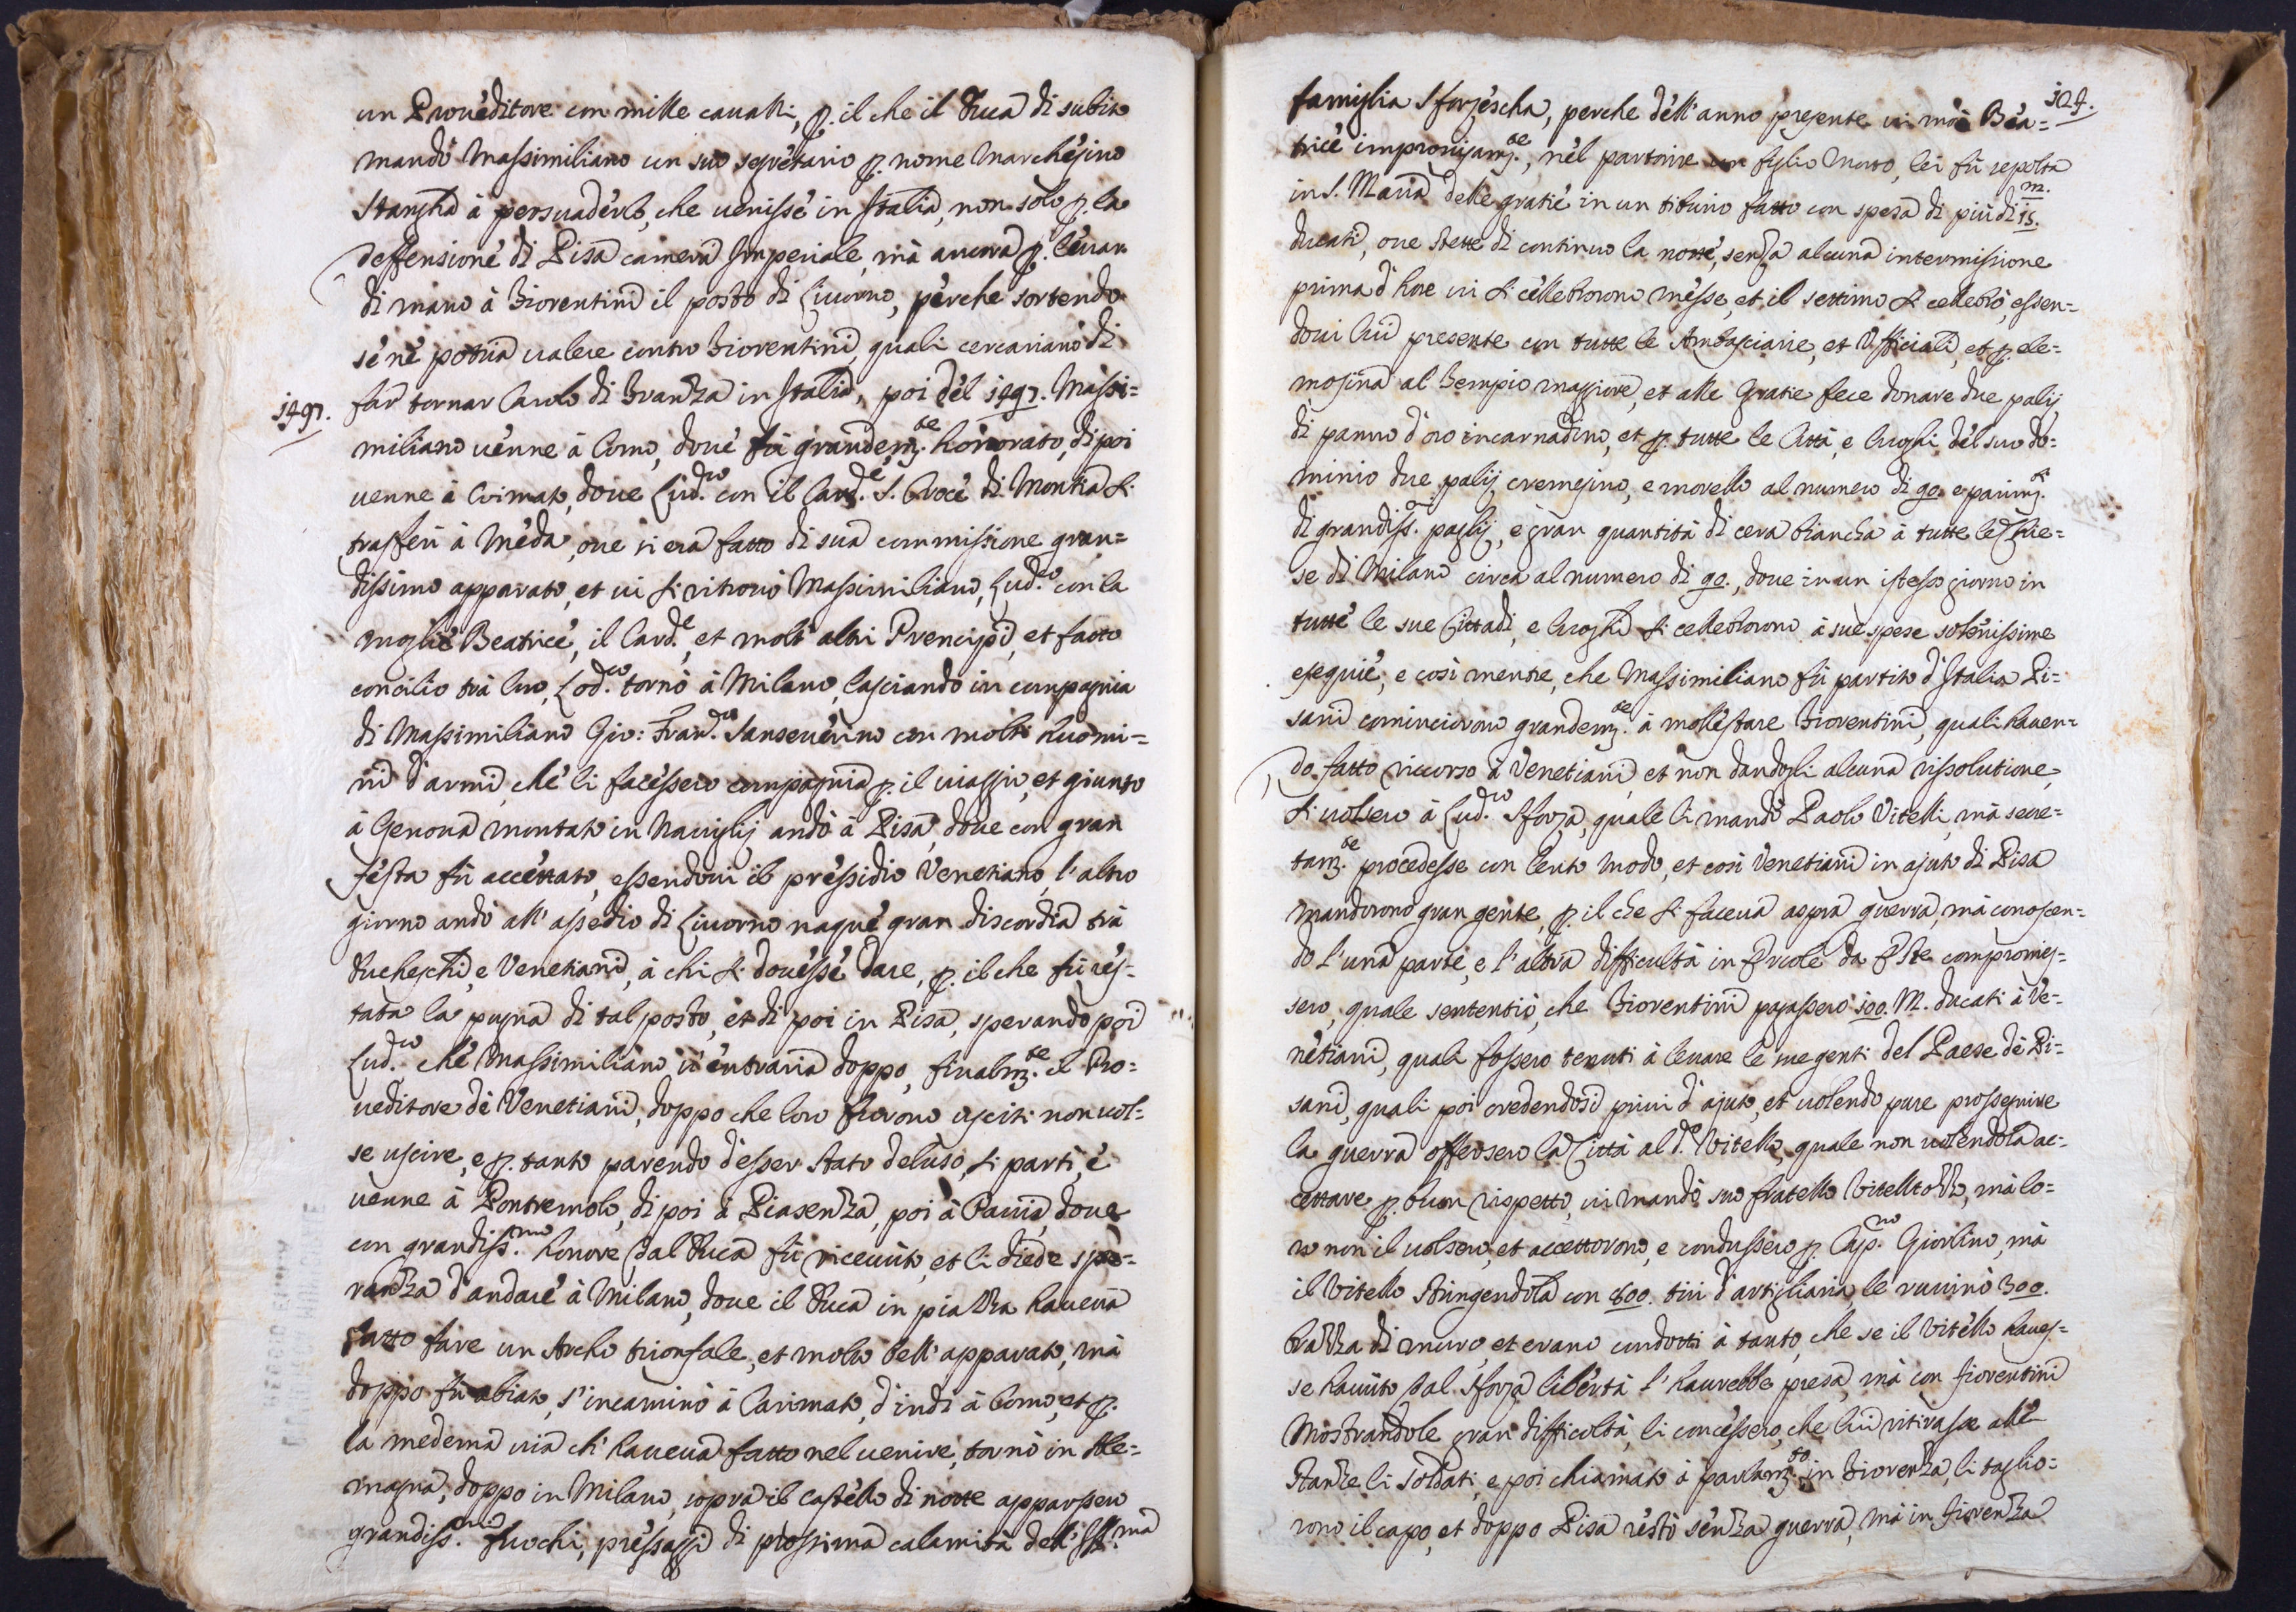 un Proueditore con mille caualli, p. il che il Duca di subito
mandò Massimiliano un suo segretario p. nome Marchesino
Stangha à persuaderlo, che uenisse in Italia, non solo p. la
deffensione di Pisa camera Imperiale, mà ancora p. leuar
di mano à Fiorentini il posto di Liuorno, perche sortendo
se nè potria ualere contro Fiorentini, quali cercariano di
1497.
far tornar Carlo di Franza in Italia, poi del 1497. Massi=
miliano uenne à Como, doue fù grandem.te honorato, di poi
uenne à Coimato, doue Lud.co con il Card.e S. Croce di Montia si
trasferì à Meda, oue vi era fatto di sua commissione gran=
dissimo apparato, et ui si ritrouò Massimiliano, Lud.co con la
moglie Beatrice, il Card.e, et molti altri Prencipi, et fatto
concilio trà loro, Lod.co tornò à Milano, lasciando in compagnia
di Massimiliano Gio: Fran.co Sanseuerino con molti huomi=
ni d'armi, che li facessero compagnia p. il uiaggio, et giunto
à Genoua montato in Nauiglij andò à Pisa, doue con gran
festa fù accettato, essendoui il pressidio Venetiano, l'altro
giorno andò all'assedio di Liuorno naque gran discordia trà
Ducheschi, e Venetiani, à chi si douesse dare, p. il che fù res=
tata la pugna di tal posto, et di poi in Pisa, sperando poi
Lud.co che Massimiliano u'entraria doppo, finalm.te il Pro=
ueditore dè Venetiani, doppo che loro furono usciti non uol=
se uscire, e p. tanto parendo d'esser stato deluso, si partì, è
uenne à Pontremolo, di poi à Piasenza, poi à Pauia, doue
con grandiss.mo honore dal Duca fù riceuuto, et li diede spe=
ranza d'andare à Milano, doue il Duca in piazza haueua
fatto fare un Archo trionfale, et molto bell'apparato, mà
doppo fù abiato, s'incaminò à Carimato, d'indi à Como, et p.
la medema uia ch'haueua fatto nel uenire, tornò in Ale=
magna, doppo in Milano, sopra il castello di notte apparsero
grandiss.mi fuochi, pressaggi di prossima calamità dell'Ill.ma
famiglia Sforzescha, perche dell'anno presente ui morì Bea=
trice improuisam.te, nel partorire un figlio morto, lei fù sepolta
in S. Maria delle gratie in un tiburio fatto con spesa di più di 15.m.
ducati, oue stette di continuo la notte, senza alcuna intermissione
prima d'hore ui si cellebrorono messe, et il settimo si cellebrò, essen=
doui lui presente con tutte le Ambasciarie, et Ufficiali, et p. ele=
mosina al Tempio maggiore, et alle gratie fece donare due palij
di panno d'oro incarnadino, et p. tutte le Città, e luoghi del suo do=
minio due palij cremesino, e morello al numero di 90. e parim.te
di grandiss. paglij, e gran quantità di cera biancha à tutte le Chie=
se di Milano circa al numero di 90., doue in un istesso giorno in
tutte le sue Cittadi, e luoghi si cellebrorono à sue spese solenissime
esequie, e così mentre, che Massimiliano fù partito d'Italia Pi=
sani cominciorono grandem.te à mollestare Fiorentini, quali hauen=
do fatto riccorso à Venetiani, et non dandogli alcuna rissolutione,
si uolsero à Lud.co Sforza, quale li mandò Paolo Vitelli, mà secre=
tam.te procedesse con lento modo, et così Venetiani in ajuto di Pisa
mandorono gran gente, p. il che si faceua aspra guerra, mà conoscen=
do l'una parte, e l'altra difficultà in Ercole da Este compromis=
sero, quale sententiò, che Fiorentini pagassero 100. M. ducati à Ve=
netiani, quali fossero tenuti à leuare le sue genti del Paese dè Pi=
sani, quali poi credendosi priui d'ajuto, et uolendo pure prosseguire
la guerra offersero la Città al d.o Vitello, quale non uolendola ac=
cettare p. buon rispetto, ui mandò suo fratello Vitellozzo, mà lo=
ro non il uolsero, et accettorono, e condussero p. Cap.no Giorlino, mà
il Vitello stringendola con 800. tiri d'artigliaria, le ruuinò 300.
brazza di muro, et erano condotti à tanto, che se il Vitello haues=
se hauuto dal Sforza libertà l'haurebbe presa, mà con Fiorentini
mostrandole gran difficoltà, li concessero, che lui ritirasse alle
stanze li soldati, e poi chiamato à parlam.to in Fiorenza, li taglio=
rono il capo, et doppo Pisa restò senza guerra, mà in Fiorenza